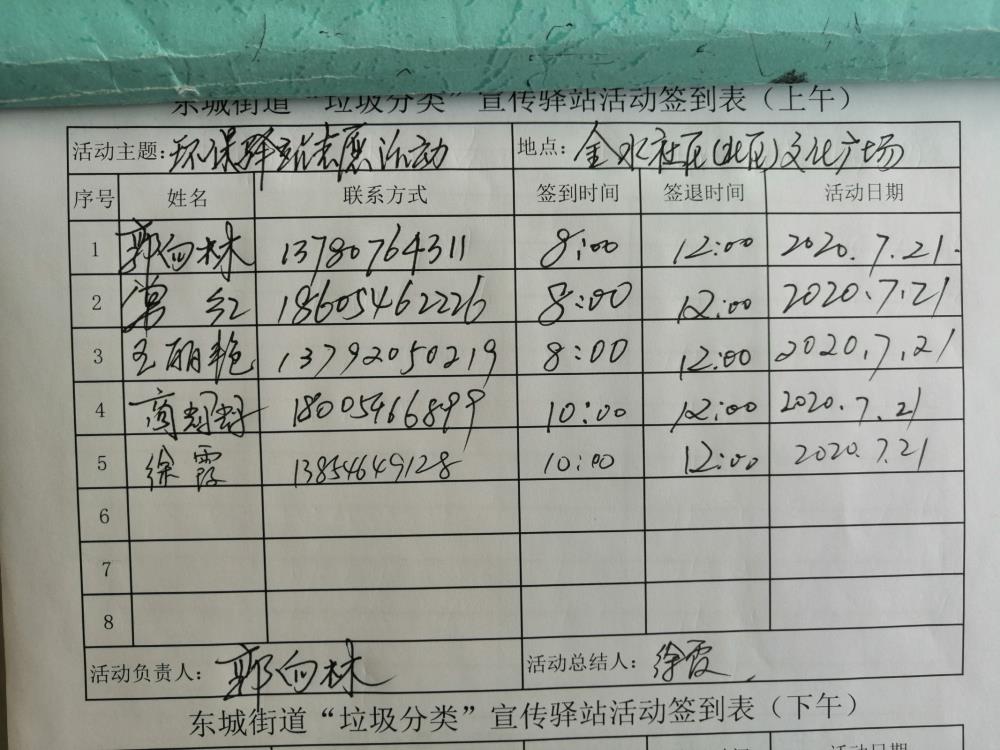 东城街道“垃圾分类”宣传驿站活动签到表（上午）
活动主题：环保驿站志愿活动 地点：金水社区（北区）文化广场
序号 姓名 联系方式 签到时间 签退时间 活动日期
1 郭向林 13780764311 8:00 12:00 2020.7.21.
2 常红 18605462226 8:00 12:00 2020.7.21
3 王丽艳 13792050219 8:00 12:00 2020.7.21
4 商 18005466899 10:00 12:00 2020.7.21
5 徐霞 13854649128 10:00 12:00 2020.7.21
6
7
8
活动负责人：郭向林 活动总结人：徐霞
东城街道“垃圾分类”宣传驿站活动签到表（下午）
活动日期